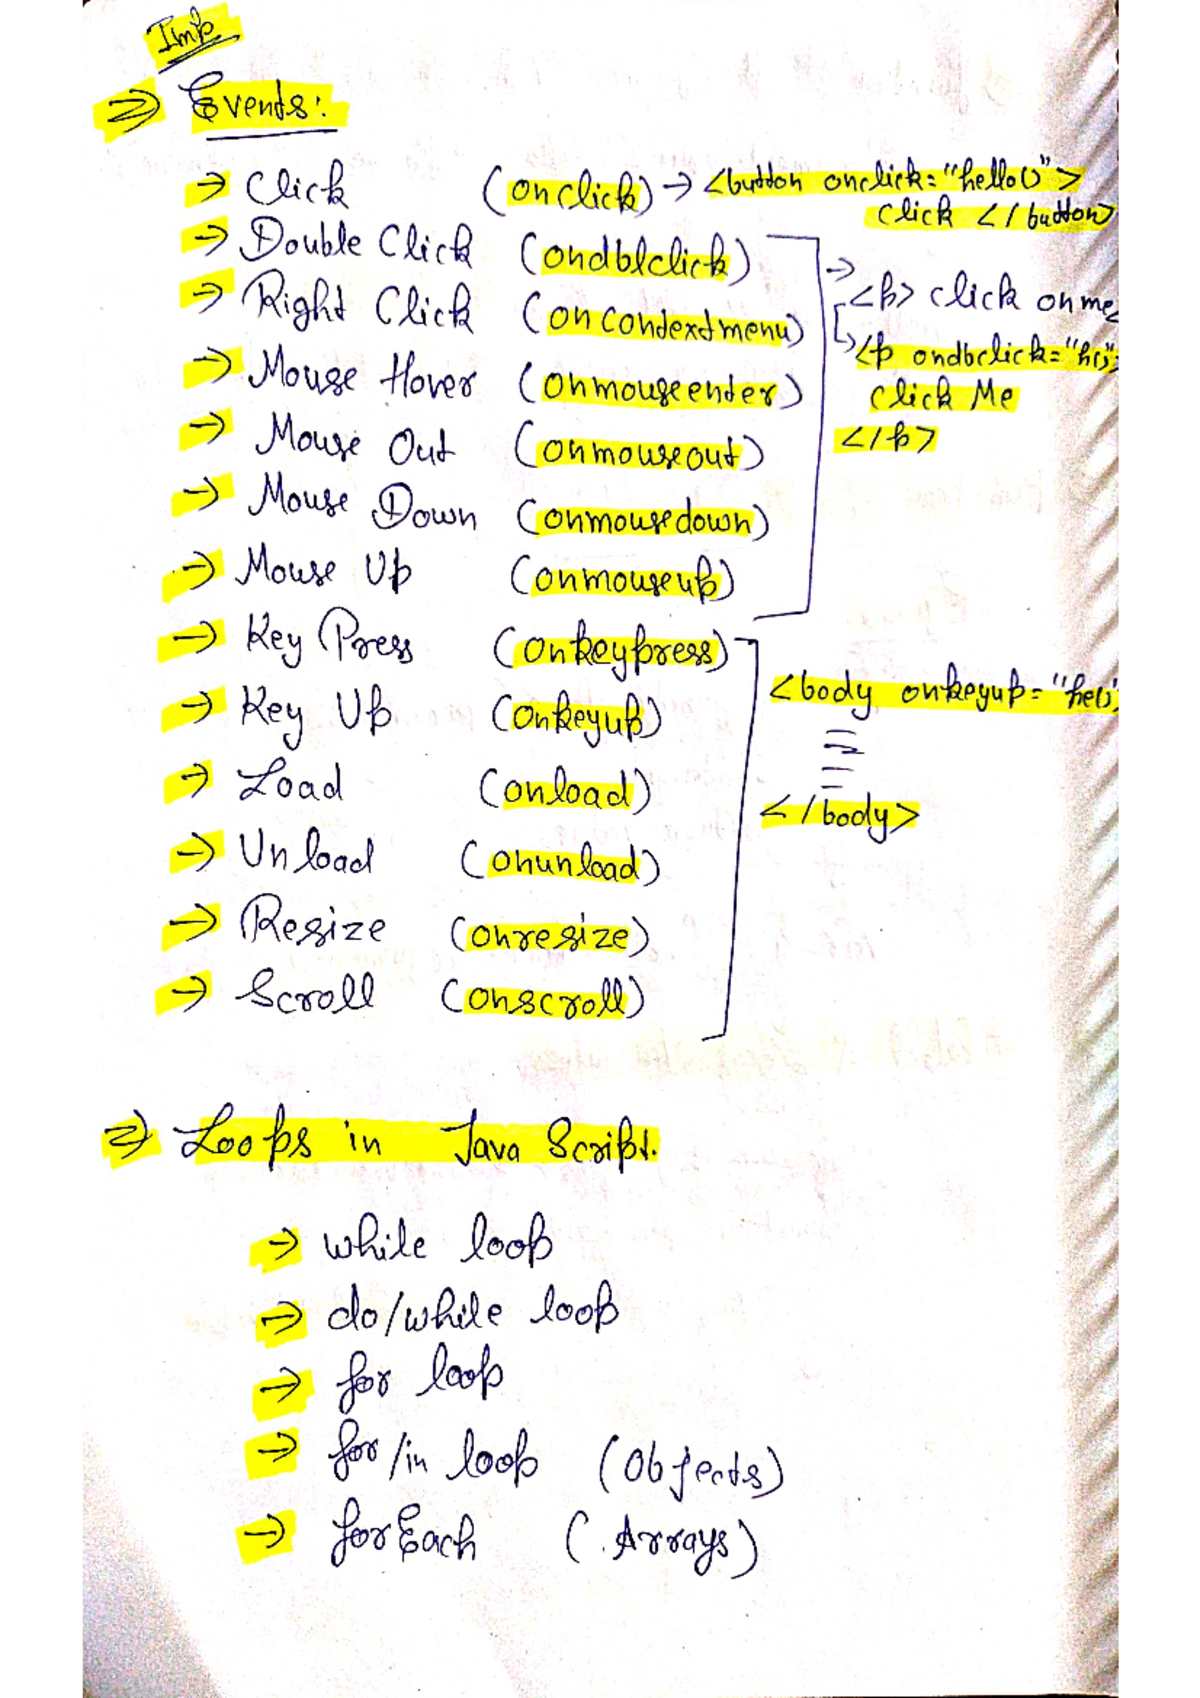 Imp
⇒ Events:
→ Click (onclick) → <button onclick="hello()">
click </button>
→ Double Click (ondblclick)
→ <p> click on me
→ Right Click (oncontextmenu)
↳ <p ondbclick="h()"
→ Mouse Hover (onmouseenter)
Click Me
→ Mouse Out (onmouseout)
</p>
→ Mouse Down (onmousedown)
→ Mouse Up (onmouseup)
→ Key Press (onkeypress)
→ Key Up (onkeyup)
<body onkeyup="he()"
→ Load (onload)
</body>
→ Unload (onunload)
→ Resize (onresize)
→ Scroll (onscroll)
⇒ Loops in Java Script.
→ while loop
→ do/while loop
→ for loop
→ for/in loop (Objects)
→ forEach (Arrays)